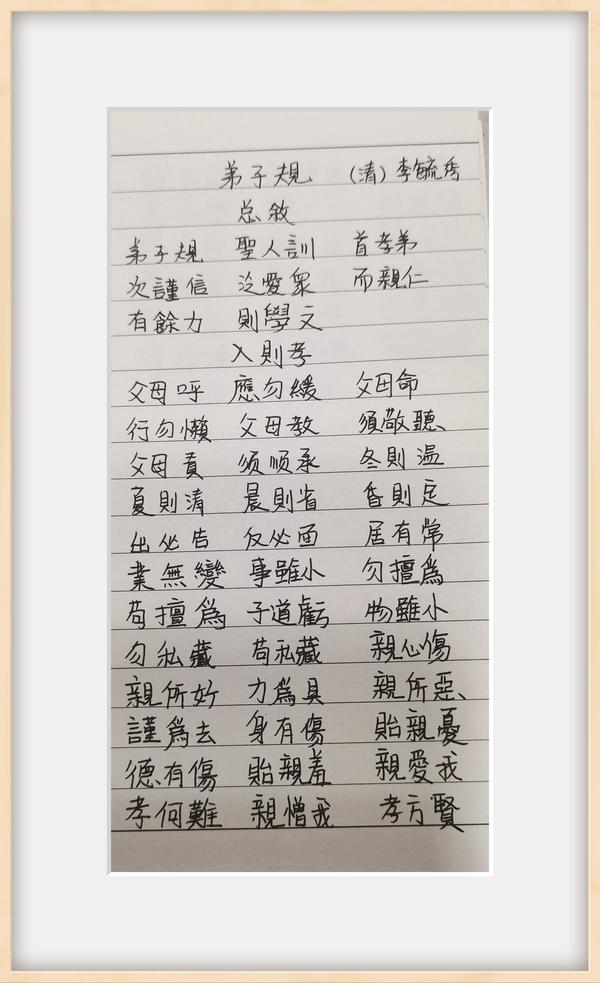 弟子规 (清)李毓秀
总敘
弟子規 聖人訓 首孝弟
次謹信 泛愛眾 而親仁
有餘力 則學文
入則孝
父母呼 應勿緩 父母命
行勿懶 父母教 須敬聽
父母責 须顺承 冬則温
夏則清 晨則省 昏則定
出必告 反必面 居有常
業無變 事雖小 勿擅爲
苟擅爲 子道虧 物雖小
勿私藏 苟私藏 親心傷
親所好 力爲具 親所惡
謹爲去 身有傷 貽親憂
德有傷 貽親羞 親愛我
孝何難 親憎我 孝方賢